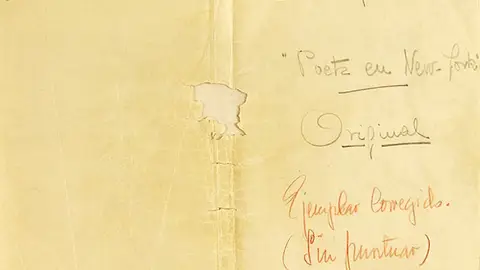 "Poeta en New-York"
Original
Ejemplar corregido.
(Sin puntuar)